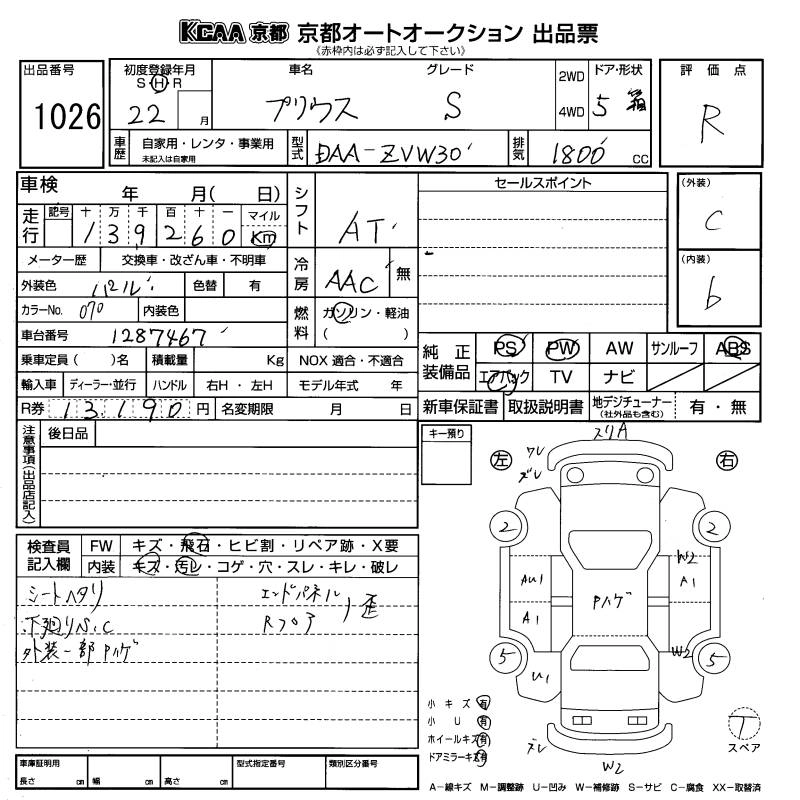 KCAA 京都 京都オートオークション 出品票
《赤枠内は必ず記入して下さい》
出品番号
1026
初度登録年月
S H R
22 月
車名
プリウス
グレード
S
2WD
4WD
ドア・形状
5 箱
評価点
R
車歴
自家用・レンタ・事業用
未記入は自家用
型式
DAA-ZVW30
排気
1800 cc
車検 年 月( 日)
走行
記号 十 万 千 百 十 一 マイル
1 3 9 2 6 0 Km
メーター歴 交換車・改ざん車・不明車
外装色 パール 色替 有
カラーNo. 070 内装色
車台番号 1287467
乗車定員( )名 積載量 Kg
輸入車 ディーラー・並行 ハンドル 右H・左H
R券 13,190 円 名変期限 月 日
シフト
AT
冷房
AAC 無
燃料
ガソリン・軽油
( )
NOX 適合・不適合
モデル年式 年
セールスポイント
(外装)
C
(内装)
b
純正装備品
PS PW AW サンルーフ ABS
エアバック TV ナビ
新車保証書 取扱説明書 地デジチューナー
(社外品も含む) 有・無
注意事項(出品店記入)
後日品
キー預り
検査員記入欄
FW キズ・飛石・ヒビ割・リペア跡・X要
内装 キズ・汚レ・コゲ・穴・スレ・キレ・破レ
シートヘタリ
下廻りS.C
外装一部Pハゲ
エンドパネル
Rフロア
歪
スリA
ワレ
ズレ
左
右
2
2
W2
AU1
A1
A1
Pハゲ
5
5
W2
U1
ズレ
W2
小キズ 有
小U 有
ホイールキズ 有
ドアミラーキズ 有
T
スペア
車庫証明用
長さ cm 幅 cm 高さ cm
型式指定番号
類別区分番号
A−線キズ M−調整跡 U−凹み W−補修跡 S−サビ C−腐食 XX−取替済